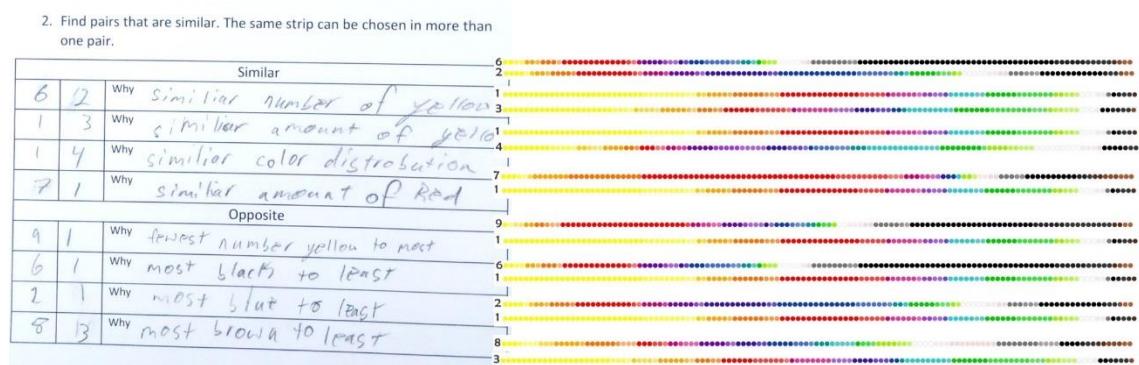 2. Find pairs that are similar. The same strip can be chosen in more than
one pair.
Similar
6 2 Why Similiar number of yellow
1 3 Why similiar amount of yello
1 4 Why similiar color distrobution
7 1 Why similiar amount of Red
Opposite
9 1 Why fewest number yellow to most
6 1 Why most black to least
2 1 Why most blue to least
8 3 Why most brown to least
6
2
1
3
1
4
7
1
9
1
6
1
2
1
8
3